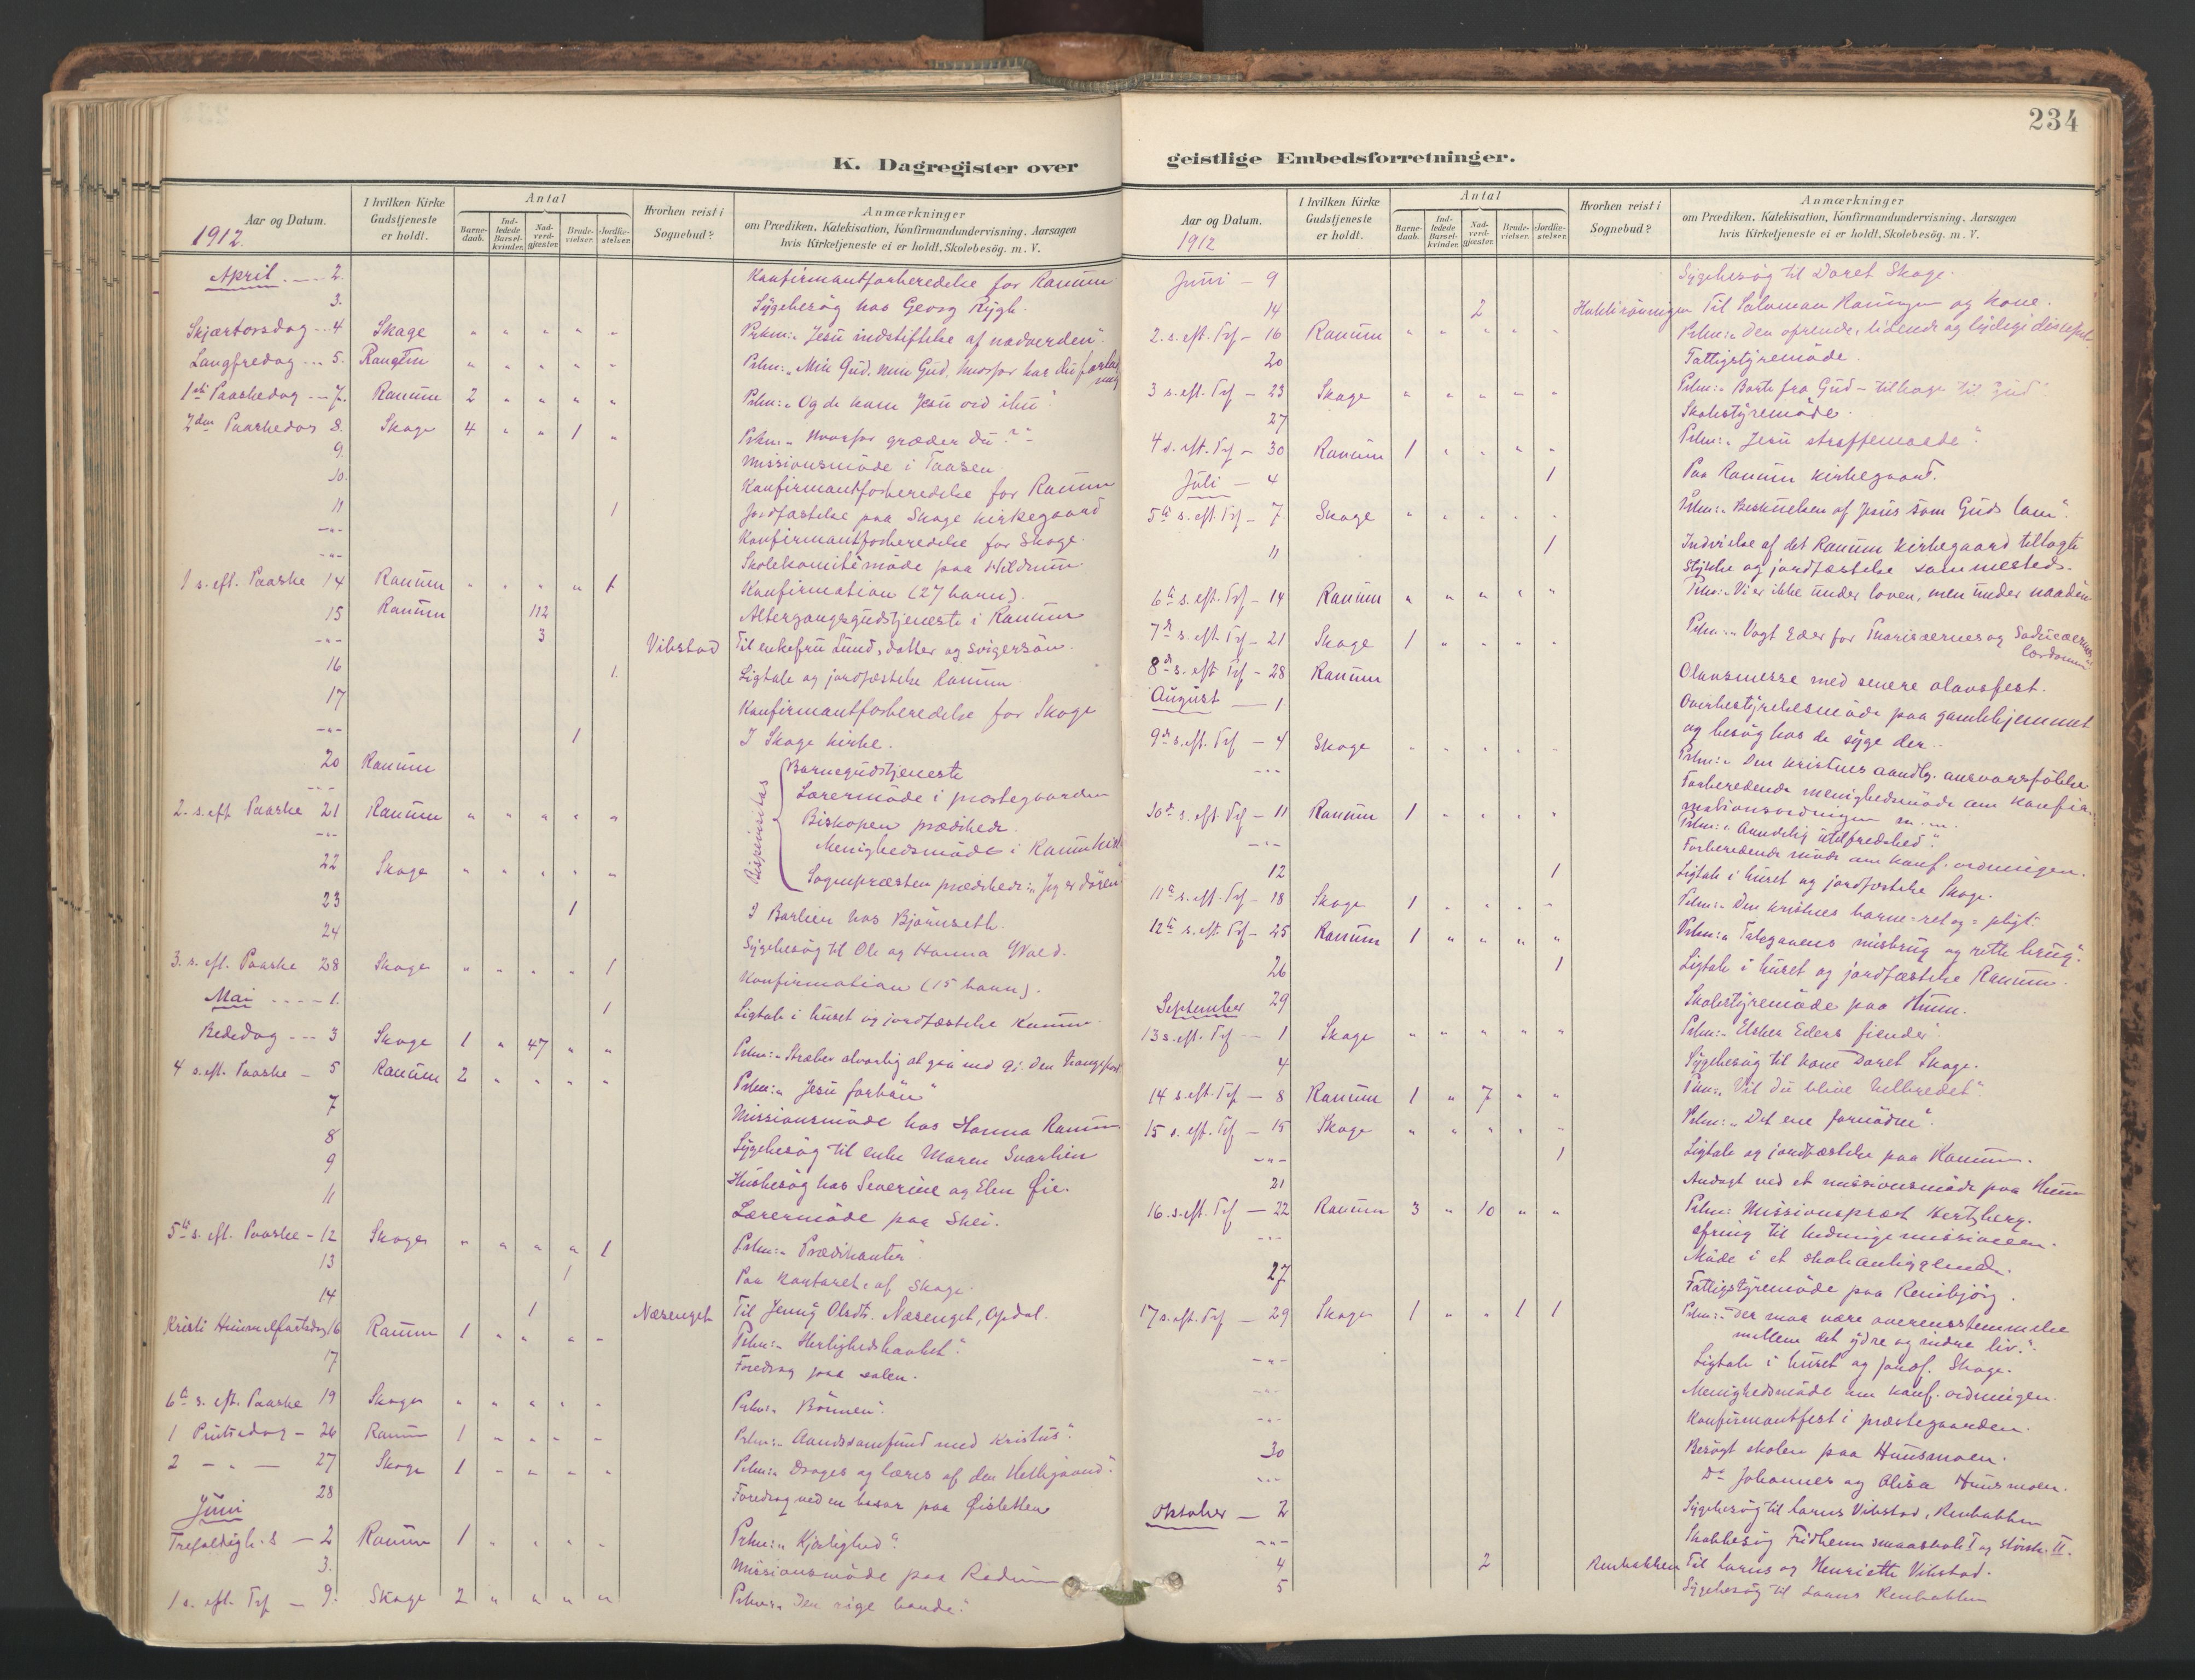 234
K. Dagregister over
geistlige Embedsforretninger.
Aar og Datum.
1912.
I hvilken Kirke Gudstjeneste er holdt.
Antal
Barnedaab.
Indledede Barselkvinder.
Nadverdgjester.
Brudevielser.
Jordfæstelser.
Hvorhen reist i Sognebud?
Anmærkninger
om Prædiken, Katekisation, Konfirmandundervisning. Aarsagen
hvis Kirketjeneste ei er holdt, Skolebesøg. m. V.
April 2. Konfirmantforberedelse for Ranum
3. Sygebesøg hos Georg Rygh.
Skjærtorsdag 4 Skage " " " " " Prkn: „Jesu indstiftelse af nadverden".
Langfredag 5. Ranem " " " " " Prkn: „Min Gud, min Gud, hvorfor har du forladt mig
1ste Paaskedag 7. Ranum 2 " " " " Prkn: „Og de kom Jesu ord ihu".
2den Paaskedag 8. Skage 4 " " 1 " Prkn: „Hvorfor græder du?"
9. Missionsmøde i Taasen.
10. Konfirmantforberedelse for Ranum
11 1 Jordfæstelse paa Skage kirkegaard
-"- Konfirmantforberedelse for Skage.
-"- Skolekomitémøde paa Hildrum.
1 s. eft. Paaske 14 Ranum " " " " 1 Konfirmation (27 barn).
15 Ranum 112 Altergangsgudstjeneste i Ranum
-"- 3 Vibstad Til enkefru Lund, datter og svigersøn.
16 1. Ligtale og jordfæstelse Ranum.
17 Konfirmantforberedelse for Skage
-"- 1 I Skage kirke.
20 Ranum Bispevisitas Barnegudstjeneste
-"- Lærermøde i prestegaarden
2. s. eft Paaske 21 Ranum " " " " " Biskopen prædikede.
-"- Menighedsmøde i Ranum kirke
22 Skage " " " " " Sognepræsten prædikede: „Jeg er døren"
23 1 I Barlien hos Bjørnseth.
24 Sygebesøg til Ole og Hanna Wold.
3. s. eft. Paaske 28 Skage " " " " 1 Konfirmation (15 barn).
Mai 1. 1 Ligtale i huset og jordfæstelse Ranum.
Bededag 3 Skage 1 " 47 " " Prkn: „Stræber alvorlig at gaa ind gj. den trange port
4 s. eft. Paaske 5 Ranum 2 " " " " Prkn: „Jesu forbøn"
7 Missionsmøde hos Hanna Ranum
8 Sygebesøg til enke Maren Svarlien
9 Husbesøg hos Severine og Elen Øie.
11 Lærermøde paa Skei.
5te s. eft. Paaske 12 Skage " " " " 1 Prkn: „Prædikanter"
13 1 Paa kontoret af Skage.
14 1 Næsenget Til Jenny Olsdt. Næsenget, Opdal.
Kristi Himmelfartsdag 16 Ranum 1 " " " " Prkn: „Herlighedshaabet".
17 Foredrag paa salen.
6te s. eft. Paaske 19 Skage " " " " " Prkn: „Bønnen".
1 Pintsedag 26 Ranum 1 " " " " Prkn: „Aandssamfund med Kristus".
2 - " - 27 Skage 1 " " " " Prkn: „Drages og læres af den Helligaand".
28 Foredrag ved en basar paa Øisletten
Juni
Trefoldigh. s 2 Ranum 1 " " " " Prkn: „Kjærlighed".
3. Missionsmøde paa Rodum
1 s. eft. Trf 9. Skage 2 " " " " Prkn: „Den rige bonde".
Aar og Datum.
1912
I hvilken Kirke Gudstjeneste er holdt.
Antal
Barnedaab.
Indledede Barselkvinder.
Nadverdgjester.
Brudevielser.
Jordfæstelser.
Hvorhen reist i Sognebud?
Anmærkninger
om Prædiken, Katekisation, Konfirmandundervisning. Aarsagen
hvis Kirketjeneste ei er holdt, Skolebesøg. m. V.
Juni 9 Sygebesøg til Doret Skage.
14 2 Til Salomon og kone.
2. s. eft. Trf 16 Ranum " " " " " Prkn: „Den ofrende, lidende og lydige discipel
20 Fattigstyremøde.
3 s. eft. Trf 23 Skage " " " " " Prkn: „Borte fra Gud - tilbage til Gud"
27 Skolestyremøde.
4 s. eft. Trf 30 Ranum 1 " " " " Prkn: „Jesu straffemaade".
Juli 4 1 Paa Ranum kirkegaard.
5te s. eft. Trf 7 Skage " " " " " Prkn: „Beskuelsen af Jesus som Guds lam".
11 1 Indvielse af det Ranum kirkegaard tillagte
stykke og jordfæstelse sammesteds.
6te s. eft. Trf 14 Ranum " " " " " Prkn: „Vi er ikke under loven, men under naaden
7de s. eft. Trf 21 Skage 1 " " " " Prkn: „Vogt Eder for Pharisæernes og Saducæernes lærdomme"
8de s. eft Trf 28 Ranum Olavsmesse med senere olavsfest.
August 1 Overbestyrelsesmøde paa gamlehjemmet
og besøg hos de syge der.
9de s. eft. Trf 4 Skage " " " " " Prkn: „Den kristnes aandlg. ansvarsfølelse
-"- Forberedende menighedsmøde om konfir-
mationsordningen m. m.
10de s. eft. Trf 11 Ranum 1 " " " " Prkn: „Aandelig utilfredshed".
-"- Forberedende møde om konf. ordningen.
12 1 Ligtale i huset og jordfæstelse Skage.
11te s. eft. Trf 18 Skage 1 " " " " Prkn: „Den kristnes barne=ret og =pligt.
12te s. eft. Trf 25 Ranum 1 " " " " Prkn: „Talegavens misbrug og rette brug".
26 1 Ligtale i huset og jordfæstelse Ranum.
29 Skolestyremøde paa Hunn.
September
13 s. eft. Trf 1 Skage " " " " " Prkn: „Elsker Eders fiender"
4 Sygebesøg til kone Doret Skage.
14 s. eft. Trf 8 Ranum 1 " 7 " " Prkn: „Vil du blive helbredet".
15 s. eft. Trf 15 Skage " " " " " Prkn: „Det ene fornødne".
-"- 1 Ligtale og jordfæstelse paa Ranum.
21 Andagt ved et missionsmøde paa Hunn
16. s. eft. Trf 22 Ranum 3 " 10 " " Prkn: Missionsprest Kertzberg.
ofring til hedningemissionen.
-"- Møde i et skoleanliggende.
27 Fattigstyremøde paa Rensbjørg.
17 s. eft. Trf 29 Skage 1 " " 1 1 Prkn: „Der maa være overensstemmelse
mellem det ydre og indre liv".
-"- Ligtale i huset og jordf. Skage.
-"- Menighedsmøde om konf. ordningen.
-"- Konfirmantfest i præstegaarden.
30 Besøgt skolen paa Hunsmoen.
-"- Do Johannes og Olisa Hunsmoen.
Oktober 2 Sygebesøg til Larus Vibstad, Renbakken
-"- Skolebesøg Fridhem smaaskole I og storsk. II.
4 2 Renbakken Til Larus og Henriette Vibstad.
5 Sygebesøg til Larus Renbakken